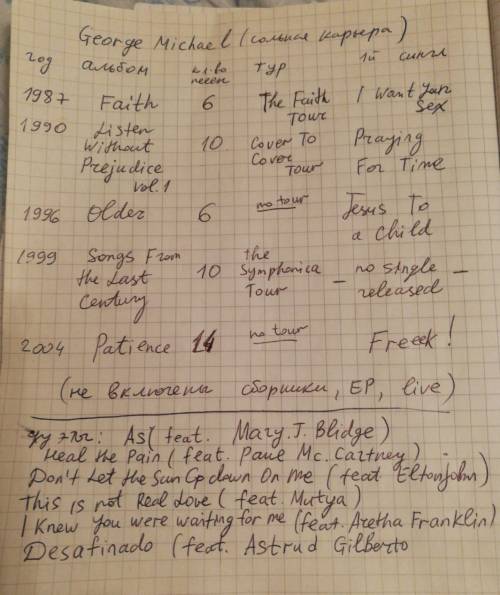 George Michael (сольная карьера)
год альбом кол-во песен тур 1й сингл
1987 Faith 6 The Faith Tour I Want Your Sex
1990 Listen Without Prejudice vol.1 10 Cover To Cover Tour Praying For Time
1996 Older 6 no tour Jesus To a Child
1999 Songs From the Last Century 10 the Symphonica Tour – no single released –
2004 Patience 14 no tour Freeek!
(не включены сборники, EP, live)
дуэты: As( feat. Mary. J. Blidge)
Heal the Pain (feat. Paul Mc. Cartney)
Don't Let the Sun Go down On Me (feat Elton john)
This is not Real Love (feat. Mutya)
I Knew You were waiting for me (feat. Aretha Franklin)
Desafinado (feat. Astrud Gilberto